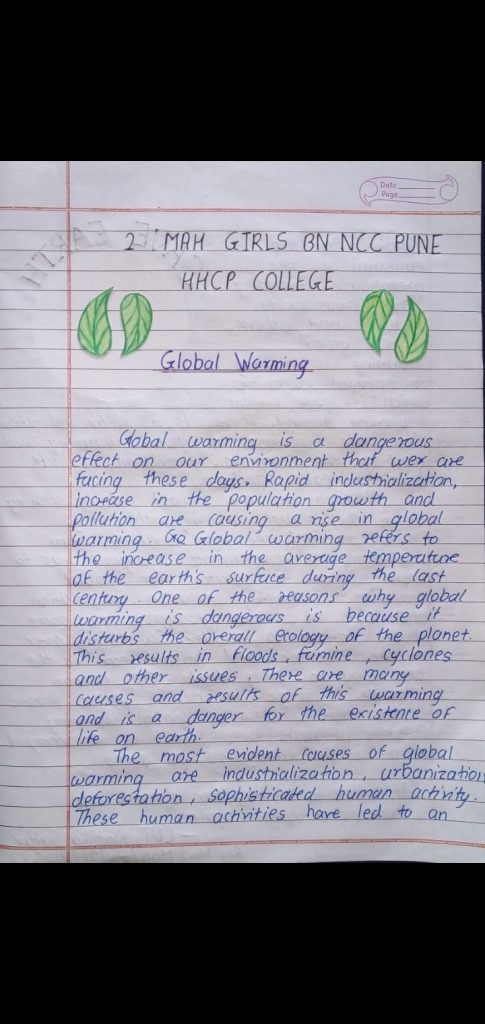 Date
Page
2 MAH GIRLS BN NCC PUNE
HHCP COLLEGE
Global Warming
Global warming is a dangerous
effect on our environment that wer are
facing these days. Rapid industrialization,
increase in the population growth and
pollution are causing a rise in global
warming. Go Global warming refers to
the increase in the average temperature
of the earth's surface during the last
century. One of the reasons why global
warming is dangerous is because it
disturbs the overall ecology of the planet.
This results in floods, famine, cyclones
and other issues. There are many
causes and results of this warming
and is a danger for the existence of
life on earth.
The most evident causes of global
warming are industrialization, urbanization
deforestation, sophisticated human activity.
These human activities have led to an